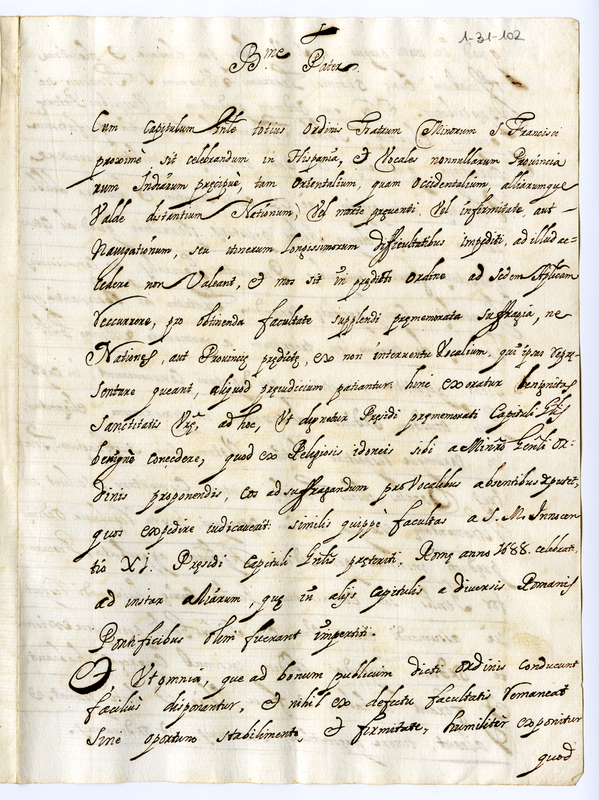 1-31-102
Bme Pater.
Cum Capitulum Gnle totius Ordinis Fratrum Minorum S. Francisci
proximè sit celebrandum in Hispania, et Vocales nonnullarum Provincia
rum Indiarum pręcipuè, tam Orientalium, quam Occidentalium, aliarumque
Valde distantium Nationum, Vel morte pręventi, Vel infirmitate, aut
Navigationum, seu itinerum longissimorum difficultatibus impediti, ad illud ac=
cedere non Valeant, et mos sit in prędicto Ordine ad Sedem Aplicam
recurrere, pro obtinenda facultate supplendi pręmemorata suffragia, ne
Nationes, aut Provincię prędictę, ex non interventu Vocalium, qui ipsas repre-
sentare queant, aliquod pręiudicium patiantur: hinc exoratur benignitas
Sanctitatis Vrę, ad hoc, Ut dignetur Pręsidi pręmemorati Capituli Glis
benignè concedere, quod ex Religiosis idoneis sibi a Minro Gnli Or-
dinis proponendis, eos ad suffragandum pro Vocalibus absentibus deputet,
quos expedire iudicaverit: similis quippè facultas a S. M. Innocen
tio XI. Pręsidi Capituli Gnlis pręteriti, Romę anno 1688. celebrati,
ad instar aliarum, quę in alijs Capitulis a diversis Romanis
Pontificibus olim fuerant impertiti.
Et Ut omnia, quę ad bonum publicum dicti Ordinis conducunt
facilius disponantur, et nihil ex defectu facultatis remaneat
sine oportuno stabilimento, et firmitate, humiliter exponitur
quod